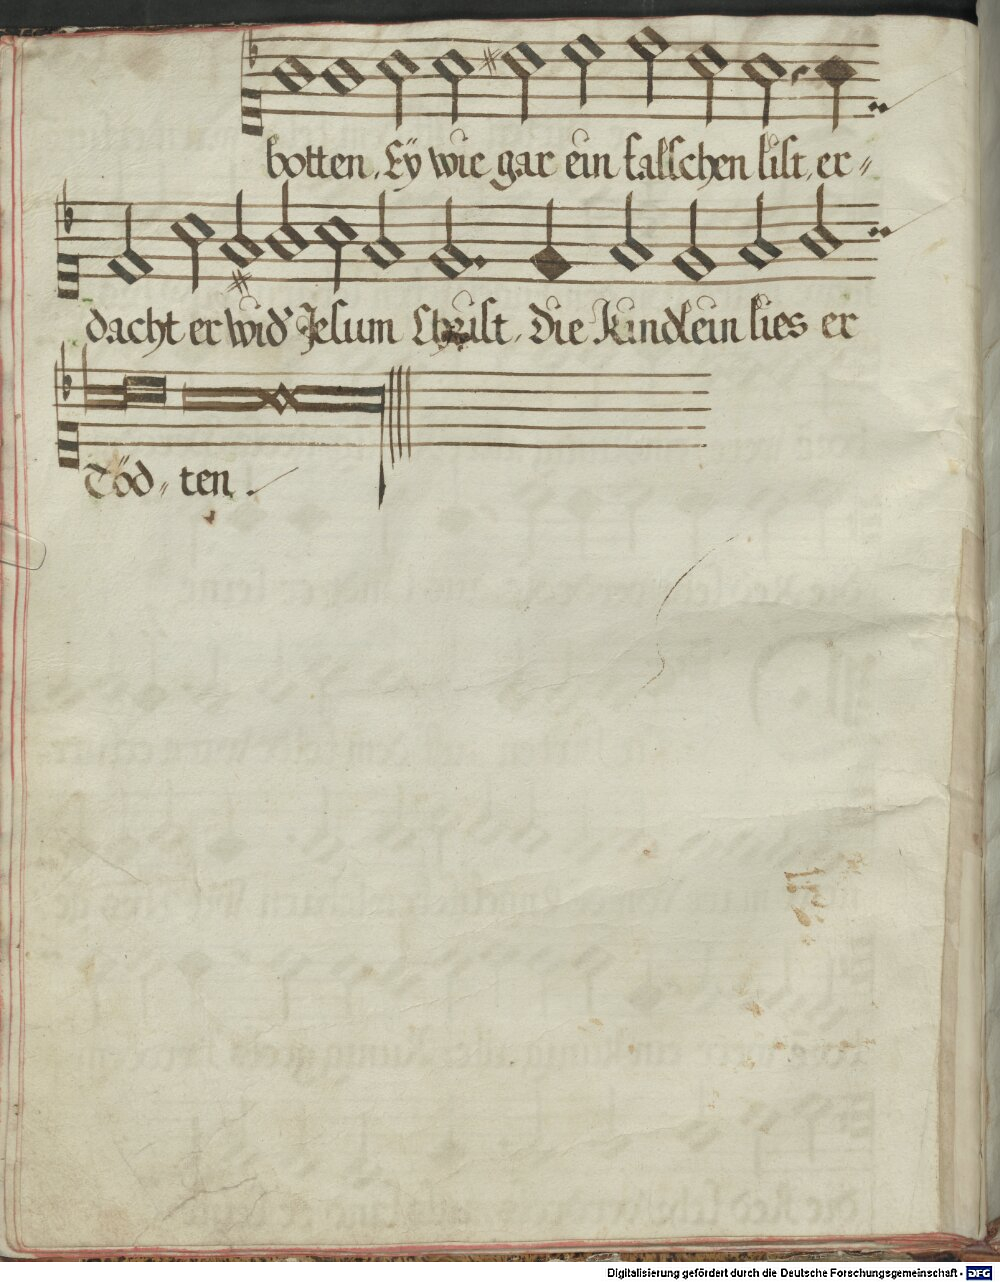 botten, Eÿ wie gar ein falschen list, er=
dacht er wid' Jesum Christ, die Kindlein lies er
Töd= ten.
Digitalisierung gefördert durch die Deutsche Forschungsgemeinschaft - DFG